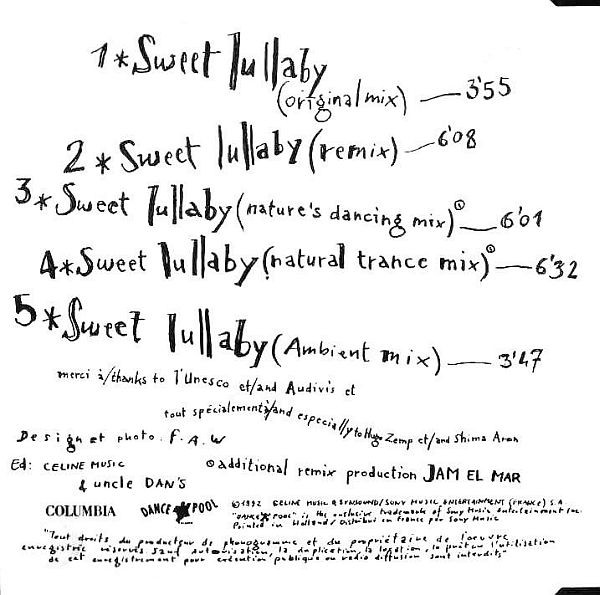 1*Sweet lullaby
(original mix) — 3'55
2*Sweet lullaby (remix) — 6'08
3*Sweet lullaby (nature's dancing mix)° — 6'01
4*Sweet lullaby (natural trance mix)° — 6'32
5*Sweet lullaby (Ambient mix) — 3'47
merci à/thanks to l'Unesco et/and Audivis et
tout spécialement à/and especially to Hugo Zemp et/and Shima Aron
Design et photo. F.A.W
Ed: CELINE MUSIC
& uncle DAN'S
°additional remix production JAM EL MAR
COLUMBIA DANCE POOL
©1992 CELINE MUSIC & SYNSOUND/SONY MUSIC ENTERTAINMENT (FRANCE) S.A
"DANCE POOL" is the exclusive trademark of Sony Music Entertainment Inc.
Printed in Holland/Distribué en France par Sony Music
"Tout droits du producteur de phonogramme et du propriétaire de l'oeuvre
enregistrée réservés sauf autorisation, la duplication, la location, le prêt ou l'utilisation
de cet enregistrement pour exécution publique ou radio diffusion sont interdits"